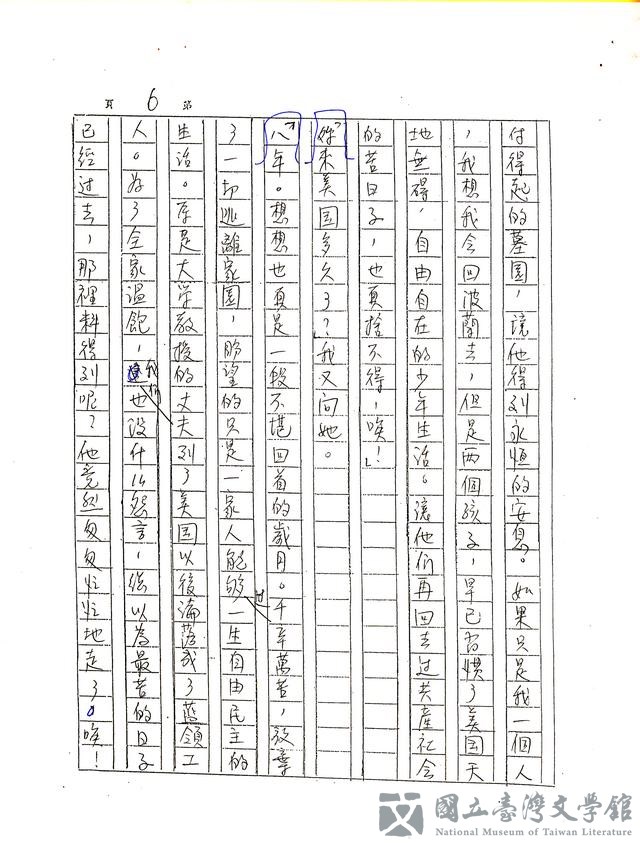 第 6 頁
付得起的墓園，讓他得到永恒的安息。如果只是我一個人
，我想我会回波蘭去，但是両個孩子，早已習慣了美国天
地無碍，自由自在的少年生活。讓他们再回去过共產社会
的苦日子，也真捨不得，唉！」
「妳來美国多久了？」我又问她。
「八年。想想也真是一段不堪回首的歲月。千辛萬苦，放棄
了一切逃離家園，盼望的只是一家人能够过一生自由民主的
生活。原是大学教授的丈夫到了美国以後淪落成了藍領工
人。为了全家温飽，我们也沒什么怨言，總以為最苦的日子
已經过去，那裡料得到呢？他竟然匆匆忙忙地走了。唉！
國立臺灣文學館
National Museum of Taiwan Literature